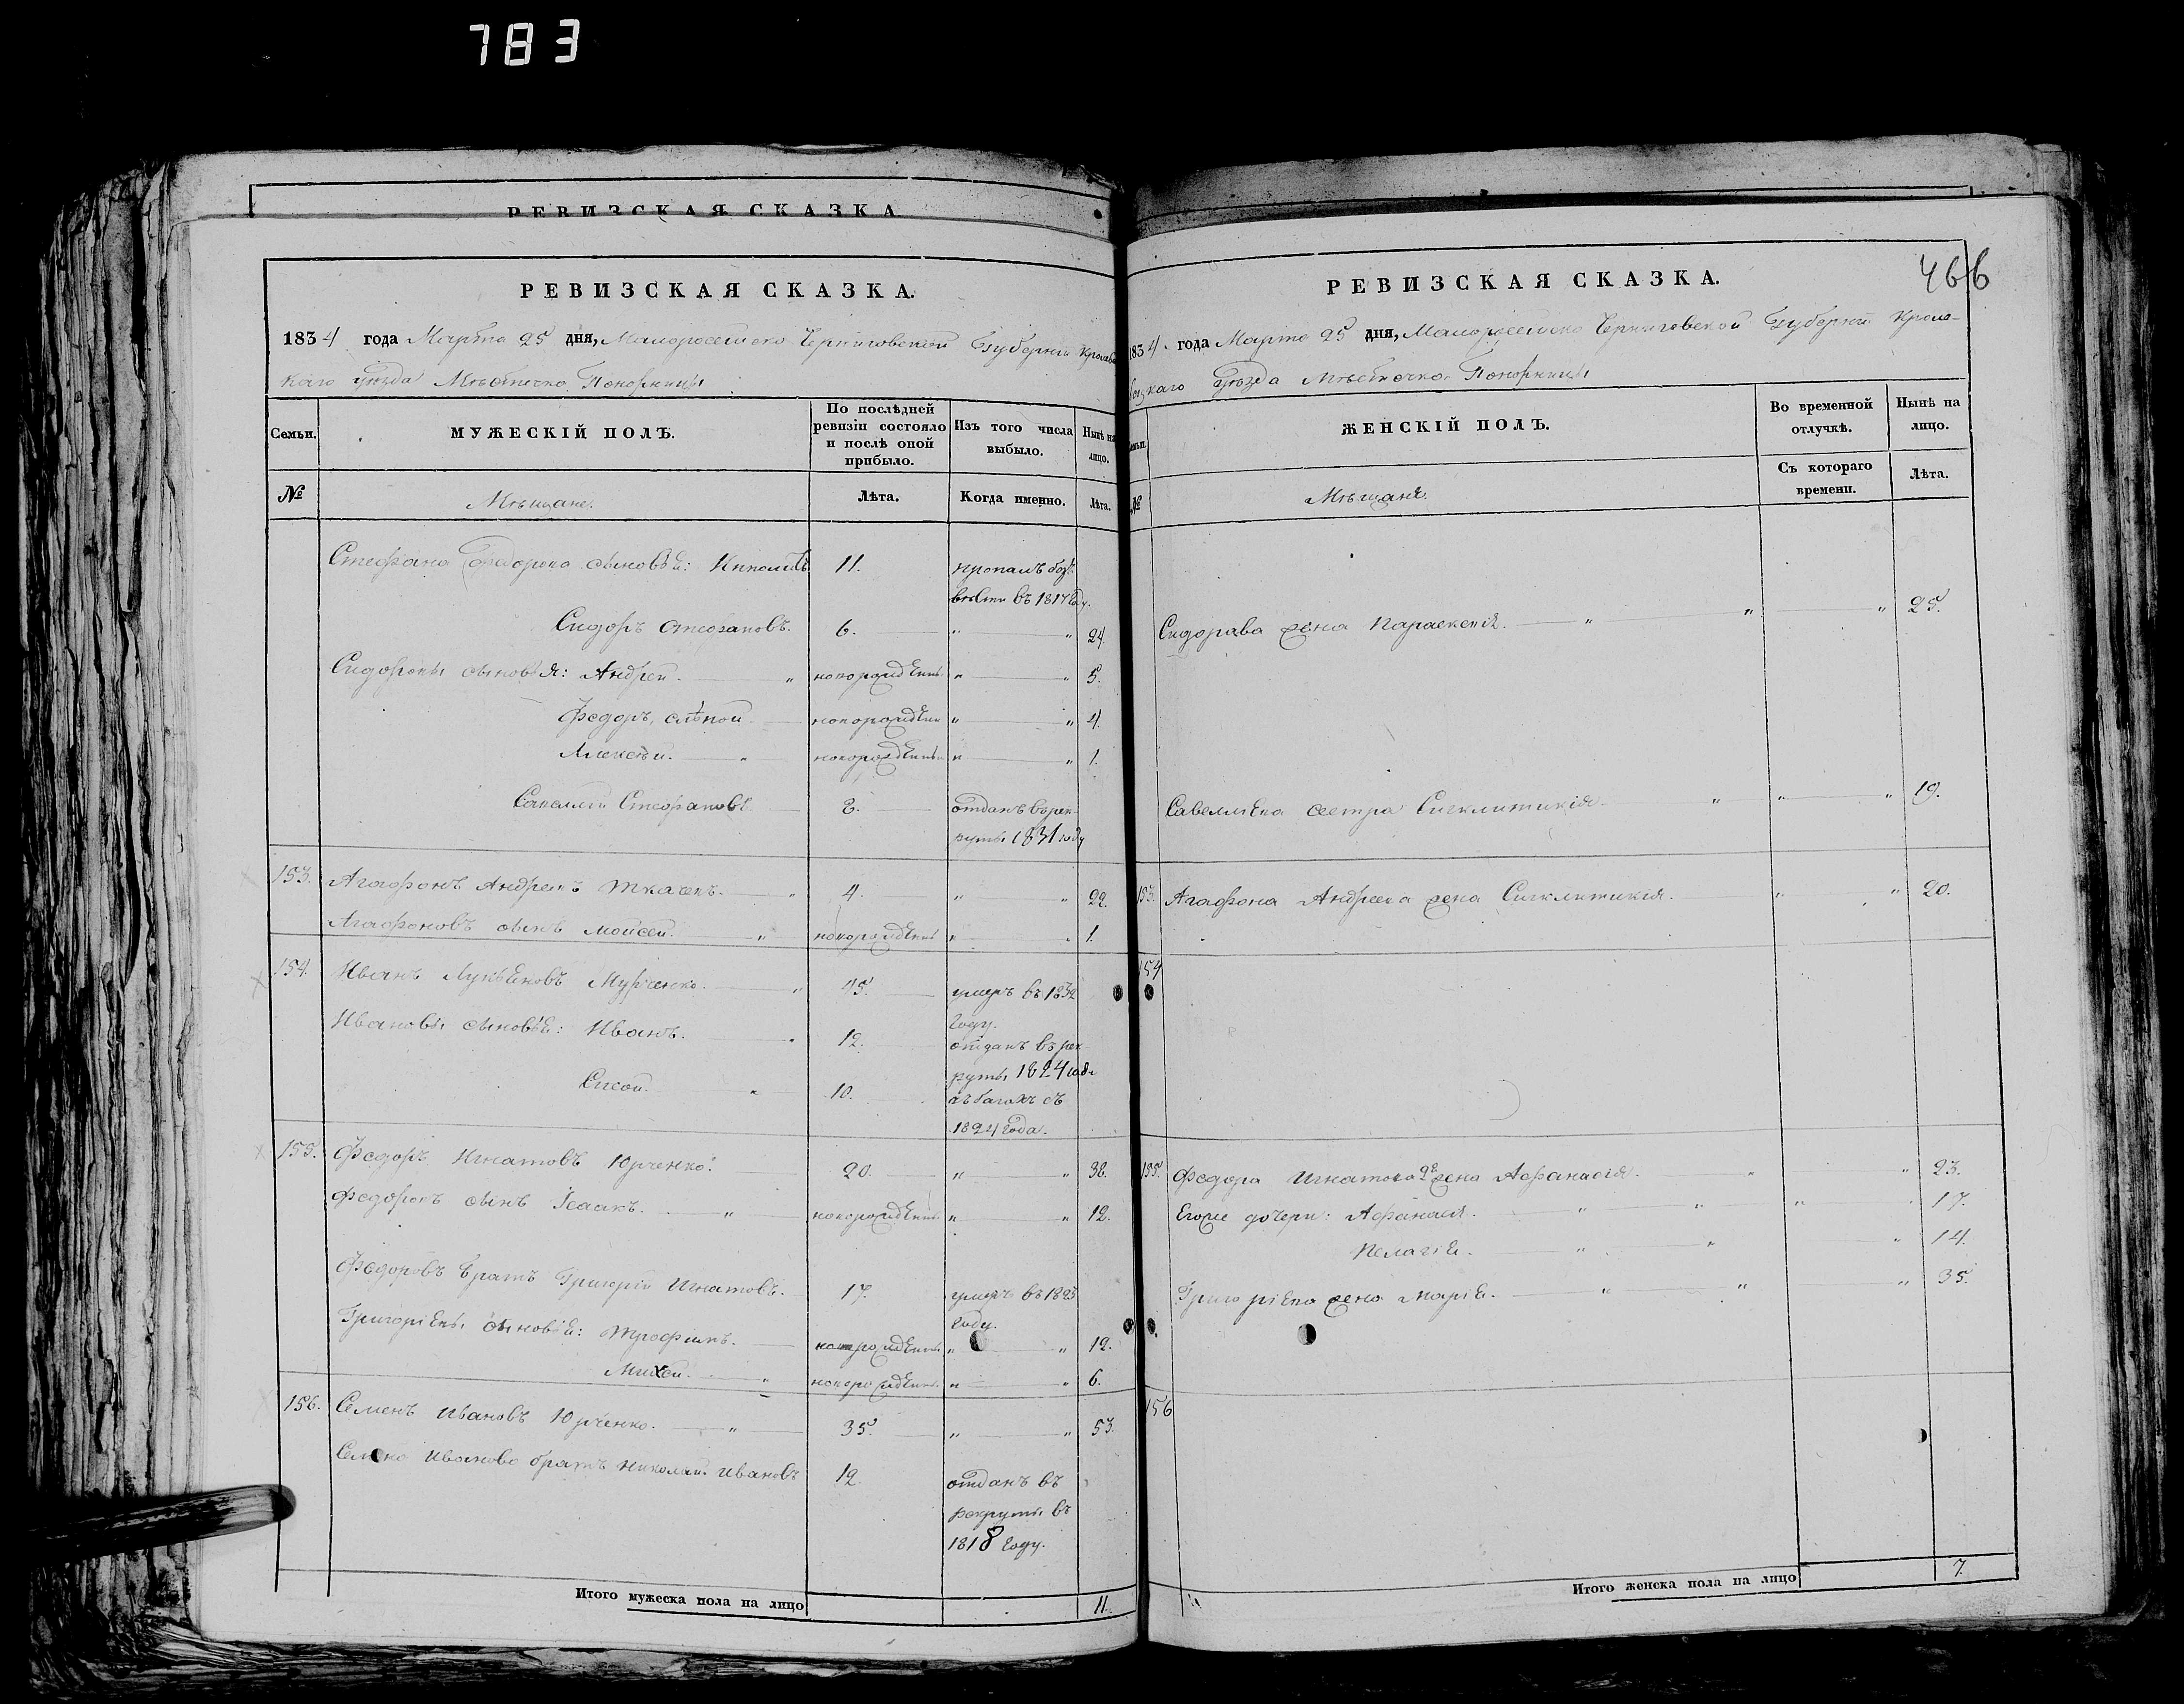 783
РЕВИЗСКАЯ СКАЗКА
РЕВИЗСКАЯ СКАЗКА.
1834 года Марта 25 дня, Малороссийско Черниговской Губернии Кролевец
каго Уѣзда Мѣстечка Понорницы
Семьи.
МУЖЕСКІЙ ПОЛЪ.
По послѣдней ревизіи состояло и послѣ оной прибыло.
Изъ того числа выбыло.
Нынѣ на лицо.
№
Мѣщане.
Лѣта.
Когда именно.
Лѣта.
Стефана Федорова сыновья: Ипполитъ 11. пропалъ безъ
вѣсти въ 1817 году.
Сидоръ Стефановъ. 6. " " 24.
Сидоровы сыновья: Андрей. " новорожденъ " " 5.
Федоръ, слѣпой. новорожден " " 4.
Алексѣй. " новорожденъ " " 1.
Савелій Стефановъ 2. отданъ въ рек-
руты 1831 году
153. Агафонъ Андреевъ Ткачевъ. " 4. " " 22.
Агафоновъ сынъ Мойсей. " новорожденъ " " 1.
154. Иванъ Лукьяновъ Мурченко. " 45. умеръ въ 1832
году.
Ивановы сыновья: Иванъ. " 12. отданъ въ рек
руты 1824 года
Сисой. " 10. въ бегахъ съ
1824 года.
155. Федоръ Игнатовъ Юрченко. 20. " " 38.
Федоровъ сынъ Исаакъ. " новорожденъ " " 12.
Федоровъ братъ Григорій Игнатовъ. 17. умеръ въ 1823
году.
Григоріевы сыновья: Трофимъ. новорожденъ " " 12.
Михей. " новорожденъ. " " 6.
156. Семенъ Ивановъ Юрченко. " 35. " " 53.
Семена Иванова братъ Николай Ивановъ 12. отданъ въ
рекруты въ
1818 году.
Итого мужеска пола на лицо 11.
466
РЕВИЗСКАЯ СКАЗКА.
1834 года Марта 25 дня, Малороссийско Черниговской Губерніи Кроле-
вецкаго Уѣзда Мѣстечка Понорницы
Семьи
ЖЕНСКІЙ ПОЛЪ.
Во временной отлучкѣ.
Нынѣ на лицо.
№
Мѣщане.
Съ котораго времени.
Лѣта.
Сидорова жена Параскевія. " " " 25.
Савеллiева сестра Сигклитикія. " " " 19.
153. Агафона Андреева жена Сигклитикія. " " 20.
154
155. Федора Игнатова 2я жена Афанасія. " " 23.
Егоже дочери: Афанасія. " " " 17.
Пелагія. " " " 14.
Григоріева жена Марія. " " " 35.
156
Итого женска пола на лицо 7.